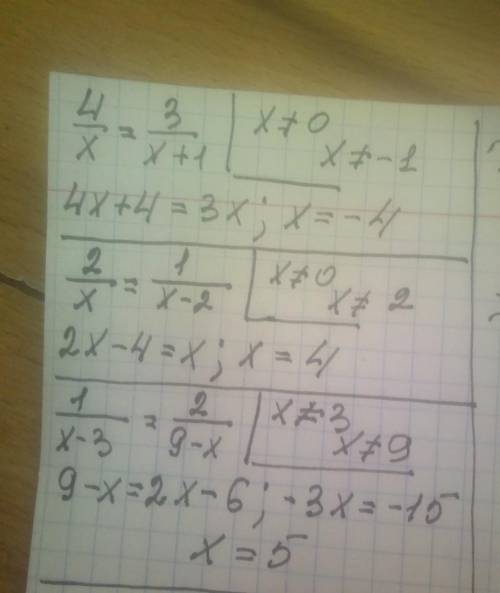 4/x = 3/(x+1) | x≠0
x≠-1
4x+4=3x; x=-4
2/x = 1/(x-2) | x≠0
x≠2
2x-4=x; x=4
1/(x-3) = 2/(9-x) | x≠3
x≠9
9-x=2x-6; -3x=-15
x=5